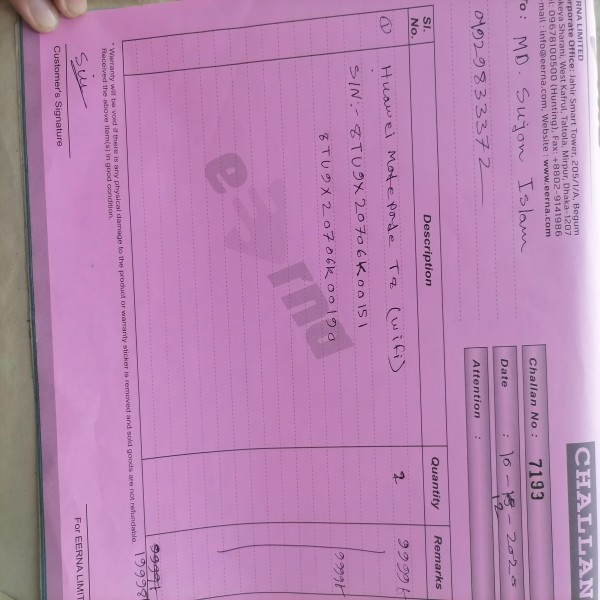 CHALLAN
EERNA LIMITED
Corporate Office: Jahir Smart Tower, 205/1/A, Begum
Rokeya Sharani, West Kafrul, Taltola, Mirpur, Dhaka-1207
Cell: 09678100500 (Hunting), Fax: +8802-9141986
E-mail: info@eerna.com, Website: www.eerna.com
Challan No : 7193
To: MD. Sujon Islam
Date : 10 - 12 - 2020
Attention :
Sl. No. Description Quantity Remarks
① Huawei Matepade T8 (Wifi) 2 9999/-
S/N:- 8TU9X20706K00151
8TU9X20706K00190 9999/-
19998/-
eerna
* Warranty will be void if there is any physical damage to the product or warranty sticker is removed and sold goods are not refundable.
Received the above item(s) in good condition.
Customer's Signature
For EERNA LIMIT